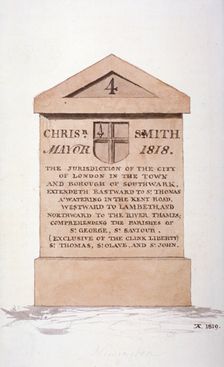 4
CHRISR. SMITH
MAYOR 1818.
THE JURISDICTION OF THE CITY
OF LONDON IN THE TOWN
AND BOROUGH OF SOUTHWARK,
EXTENDETH EASTWARD TO ST. THOMAS
A'WATERING IN THE KENT ROAD,
WESTWARD TO LAMBETH, AND
NORTHWARD TO THE RIVER THAMES;
COMPREHENDING THE PARISHES OF
ST. GEORGE, ST. SAVIOUR.
(EXCLUSIVE OF THE CLINK LIBERTY)
ST. THOMAS, ST. OLAVE, AND ST. JOHN.
1819.